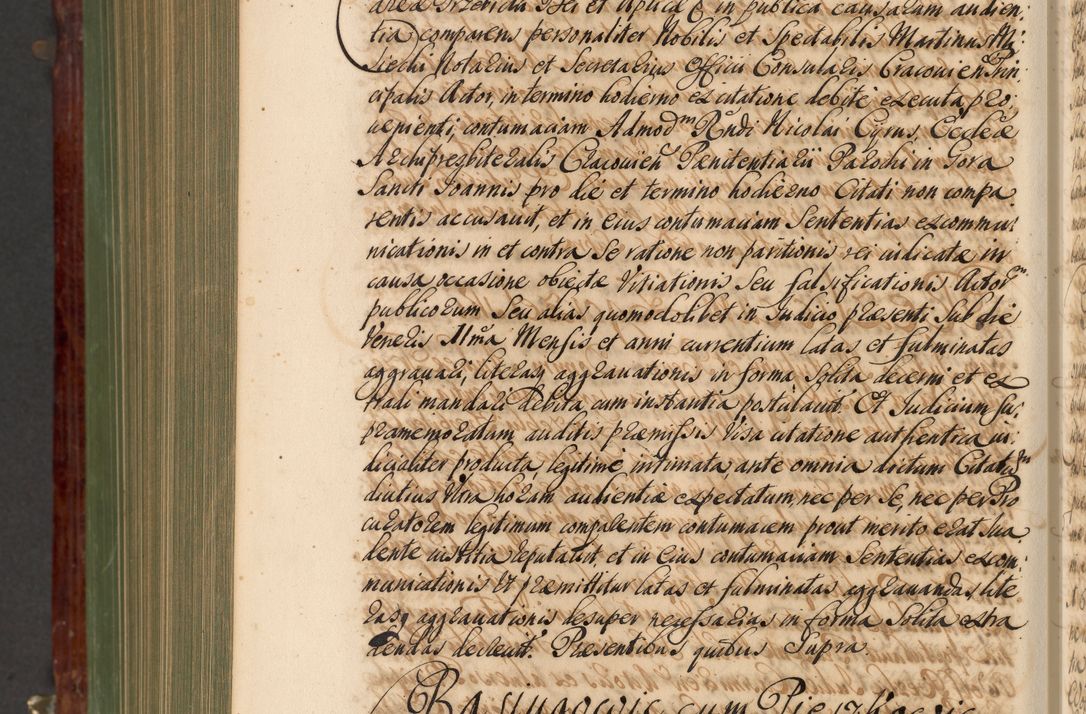 tia comparens personaliter Nobilis et Spectabilis Martinus
Notarius et Secretarius Officii Consularis Cracouien Prin:
cipalis Actor, in termino hodierno ex citatione debite executa, pro:
uenienti, contumaciam Admod Rndi Nicolai Cyrus, Ecclæ
Archipresbiteralis Cracouien Pænitentiarii Parochi in Gora
Sancti Joannis pro die et termino hodierno Citati non compa
rentis accusauit, et in eius contumaciam Sententias excommu:
nicationis in et contra Se ratione non paritionis rei iudicatæ in
causa occasione obiectæ Vitiationis Seu falsificationis Actor
publicorum Seu alias quomodolibet in Judicio præsenti Sub die
Veneris Mensis et anni currentium latas et fulminatas
aggrauari, literasq aggrauationis in forma Solita decerni et ex
tradi mandari debita, cum instantia postulauit. Et Judicium Su:
pramemoratum auditis præmissis Visa citatione authentica iu:
dicialiter producta, legitime intimata, ante omnia dictum Citatum
diutius Vltra horam audientiæ expectatum, nec per Se, nec per Pro
curatorem legitimum comparentem contumacem prout merito erat Sua
dente iustitia reputauit, et in eius contumaciam Sententias excom:
municationis Vt præmittitur latas et fulminatas aggrauandas, lite
rasq aggrauationis desuper necessarias in forma Solita extra
dendas decreuit. Præsentibus quibus Supra.
cum